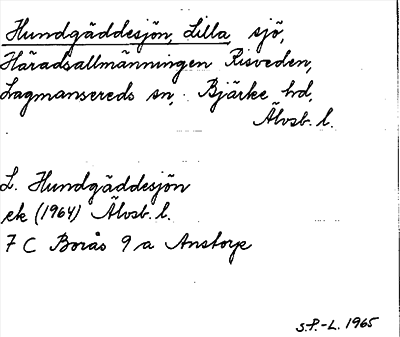 Hundgäddesjön, Lilla, sjö,
Häradsallmänningen Risveden,
Lagmansereds sn, Bjärke hd,
Älvsb. l.
L. Hundgäddesjön
ek (1964) Älvsb. l.
7 C Borås 9 a Anstorp
S.P.-L. 1965